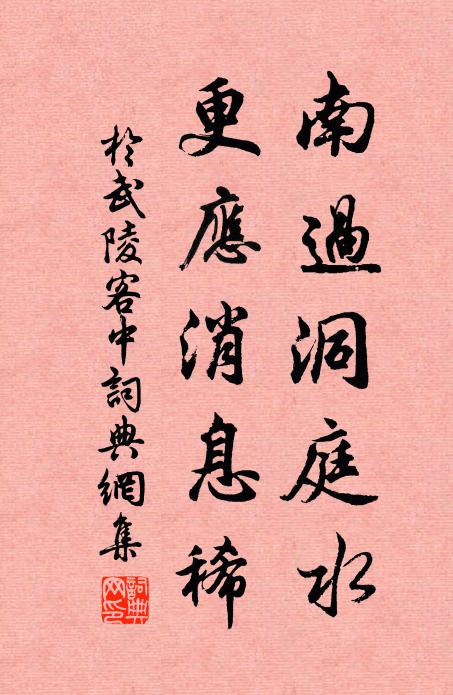 南過洞庭水
更應消息稀
於武陵客中詞典網集
詞典
网印